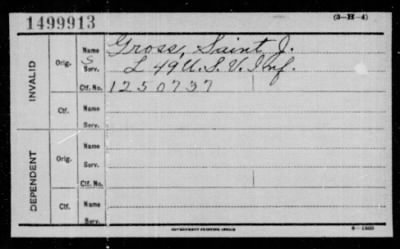 1499913
(3-H-4)
INVALID
Orig.
Name Gross, Saint J.
S
Serv. L 49 U.S.V. Inf.
Ctf. No. 1250737
Ctf.
Name
Serv.
DEPENDENT
Orig.
Name
Serv.
Ctf. No.
Ctf.
Name
Serv.
GOVERNMENT PRINTING OFFICE